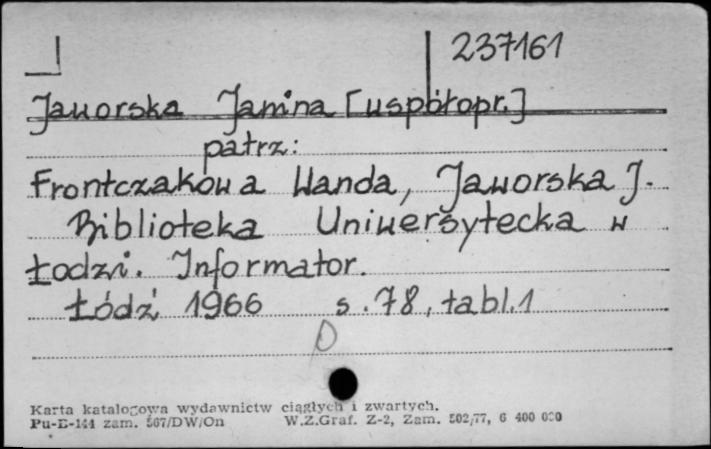 237161
Jaworska Janina [współopr.]
patrz:
Frontczakowa Wanda, Jaworska J.
Biblioteka Uniwersytecka w
Łodzi. Informator.
Łódź 1966 s. 78, tabl. 1
Karta katalogowa wydawnictw ciągłych i zwartych.
Pu-E-144 zam. 567/DW/On W.Z.Graf. Z-2, Zam. 502/77, 6 400 000